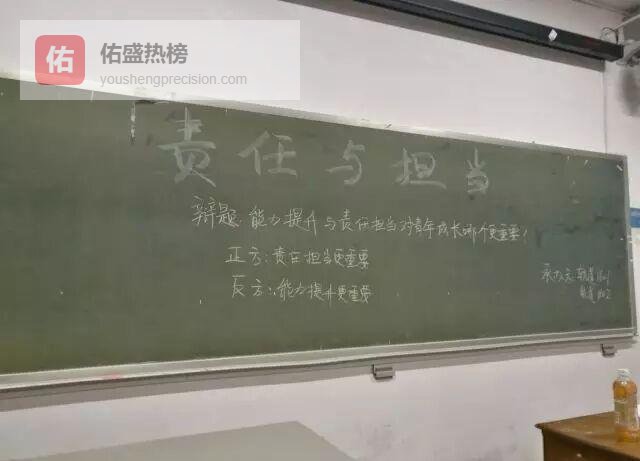 佑
佑盛热榜
youshengprecision.com
责任与担当
辩题:能力提升与责任担当对青年成长哪个更重要?
正方:责任担当更重要
反方:能力提升更重要
承办方: